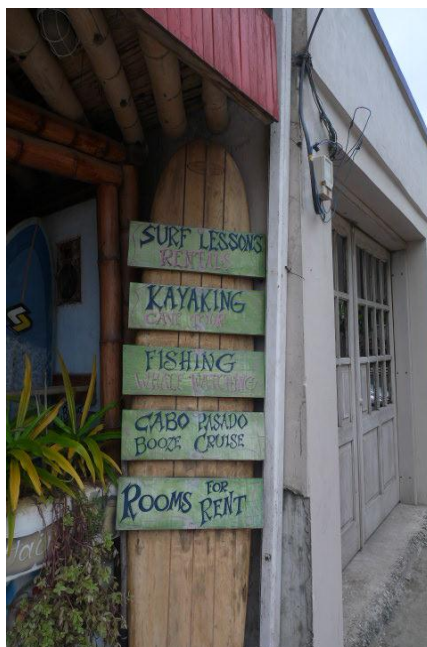 SURF LESSONS
RENTALS
KAYAKING
CAVE TOUR
FISHING
WHALE WATCHING
CABO PASADO
BOOZE CRUISE
ROOMS FOR
RENT